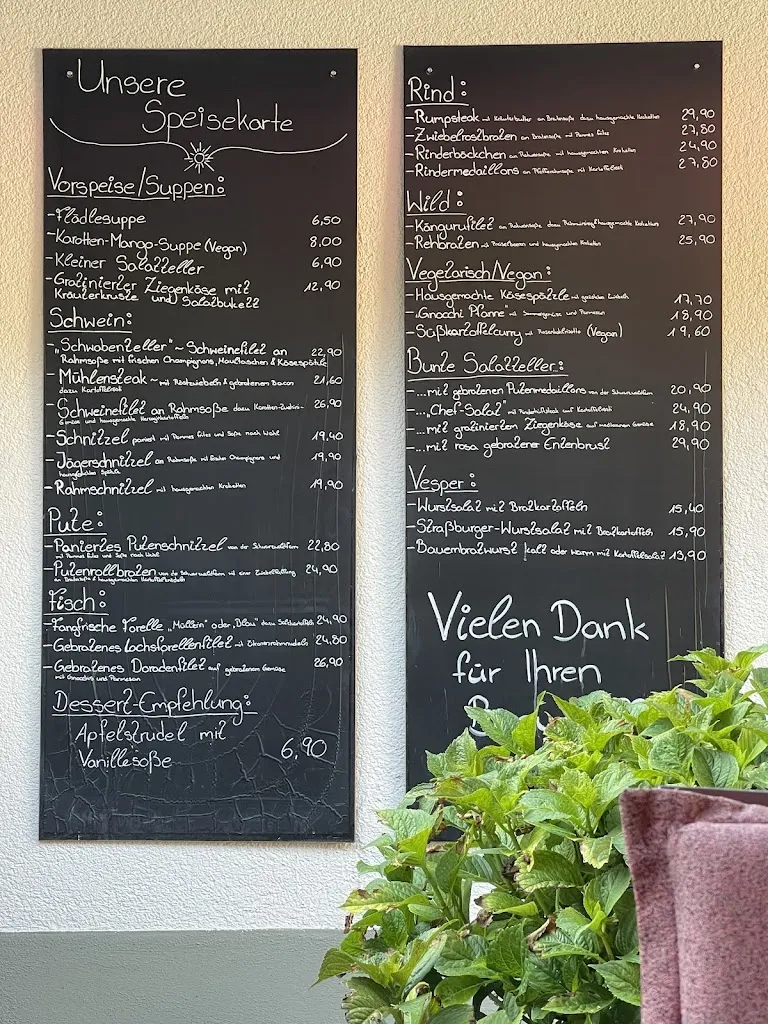 Unsere
Speisekarte
Vorspeise/Suppen:
-Flädlesuppe 6,50
-Karotten-Mango-Suppe (Vegan) 8,00
-Kleiner Salatteller 6,90
-Gratinierter Ziegenkäse mit 12,90
Kräuterkruste und Salatbukett
Schwein:
-„Schwabenteller"~Schweinefilet an 22,90
Rahmsoße mit frischen Champignons, Maultaschen & Käsespätzle
-Mühlensteak~mit Röstzwiebeln & gebratenem Bacon 21,60
dazu Kartoffelrösti
-Schweinefilet an Rahmsoße dazu Karotten-Zuchini- 26,90
Gemüse und hausgemachte
-Schnitzel paniert mit Pommes Frites und Soße nach Wahl 19,40
-Jägerschnitzel an Rahmsoße mit frischen Champignons und 19,90
hausgemachten Spätzle
-Rahmschnitzel mit hausgemachten Kroketten 19,90
Pute:
-Paniertes Putenschnitzel von der Schwarzwaldfarm 22,80
mit Pommes Frites und Soße nach Wahl
-Putenrollbraten von der Schwarzwaldfarm mit einer 24,90
an Bratensoße & hausgemachten
Fisch:
-Fangfrische Forelle „Müllerin" oder „Blau" dazu Salzkartoffeln 24,90
-Gebratenes Lachsforellenfilet mit Zitronenrahmnudeln 24,80
-Gebratenes Doradenfilet auf gebratenem Gemüse 26,90
mit Gnocchis und Parmesan
Dessert-Empfehlung:
Apfelstrudel mit
Vanillesoße 6,90
Rind:
-Rumpsteak mit Kräuterbutter an Bratensoße dazu hausgemachte Kroketten 29,90
-Zwiebelrostbraten an Bratensoße mit Pommes Frites 27,80
-Rinderbäckchen an Rotweinsoße mit hausgemachten Kroketten 24,90
-Rindermedaillons an Pfefferrahmsoße mit Kartoffelrösti 27,80
Wild:
-Kängurufilet an Rotweinsoße dazu hausgemachte Kroketten 27,90
-Rehbraten mit Preiselbeeren und hausgemachten Kroketten 25,90
Vegetarisch/Vegan:
-Hausgemachte Käsespätzle mit gerösteten Zwiebeln 17,70
-„Gnocchi Pfanne" mit Sommergemüse und Parmesan 18,90
-Süßkartoffelcurry mit (Vegan) 19,60
Bunte Salatteller:
-...mit gebratenen Putenmedaillons von der Schwarzwaldfarm 20,90
-...„Chef-Salat" mit Rinderhüftsteak auf Kartoffelrösti 24,90
-...mit gratiniertem Ziegenkäse auf mediterranem Gemüse 18,90
-...mit rosa gebratener Entenbrust 29,90
Vesper:
-Wurstsalat mit Bratkartoffeln 15,40
-Straßburger-Wurstsalat mit Bratkartoffeln 15,90
-Bauernbratwurst kalt oder warm mit Kartoffelsalat 13,90
Vielen Dank
für Ihren